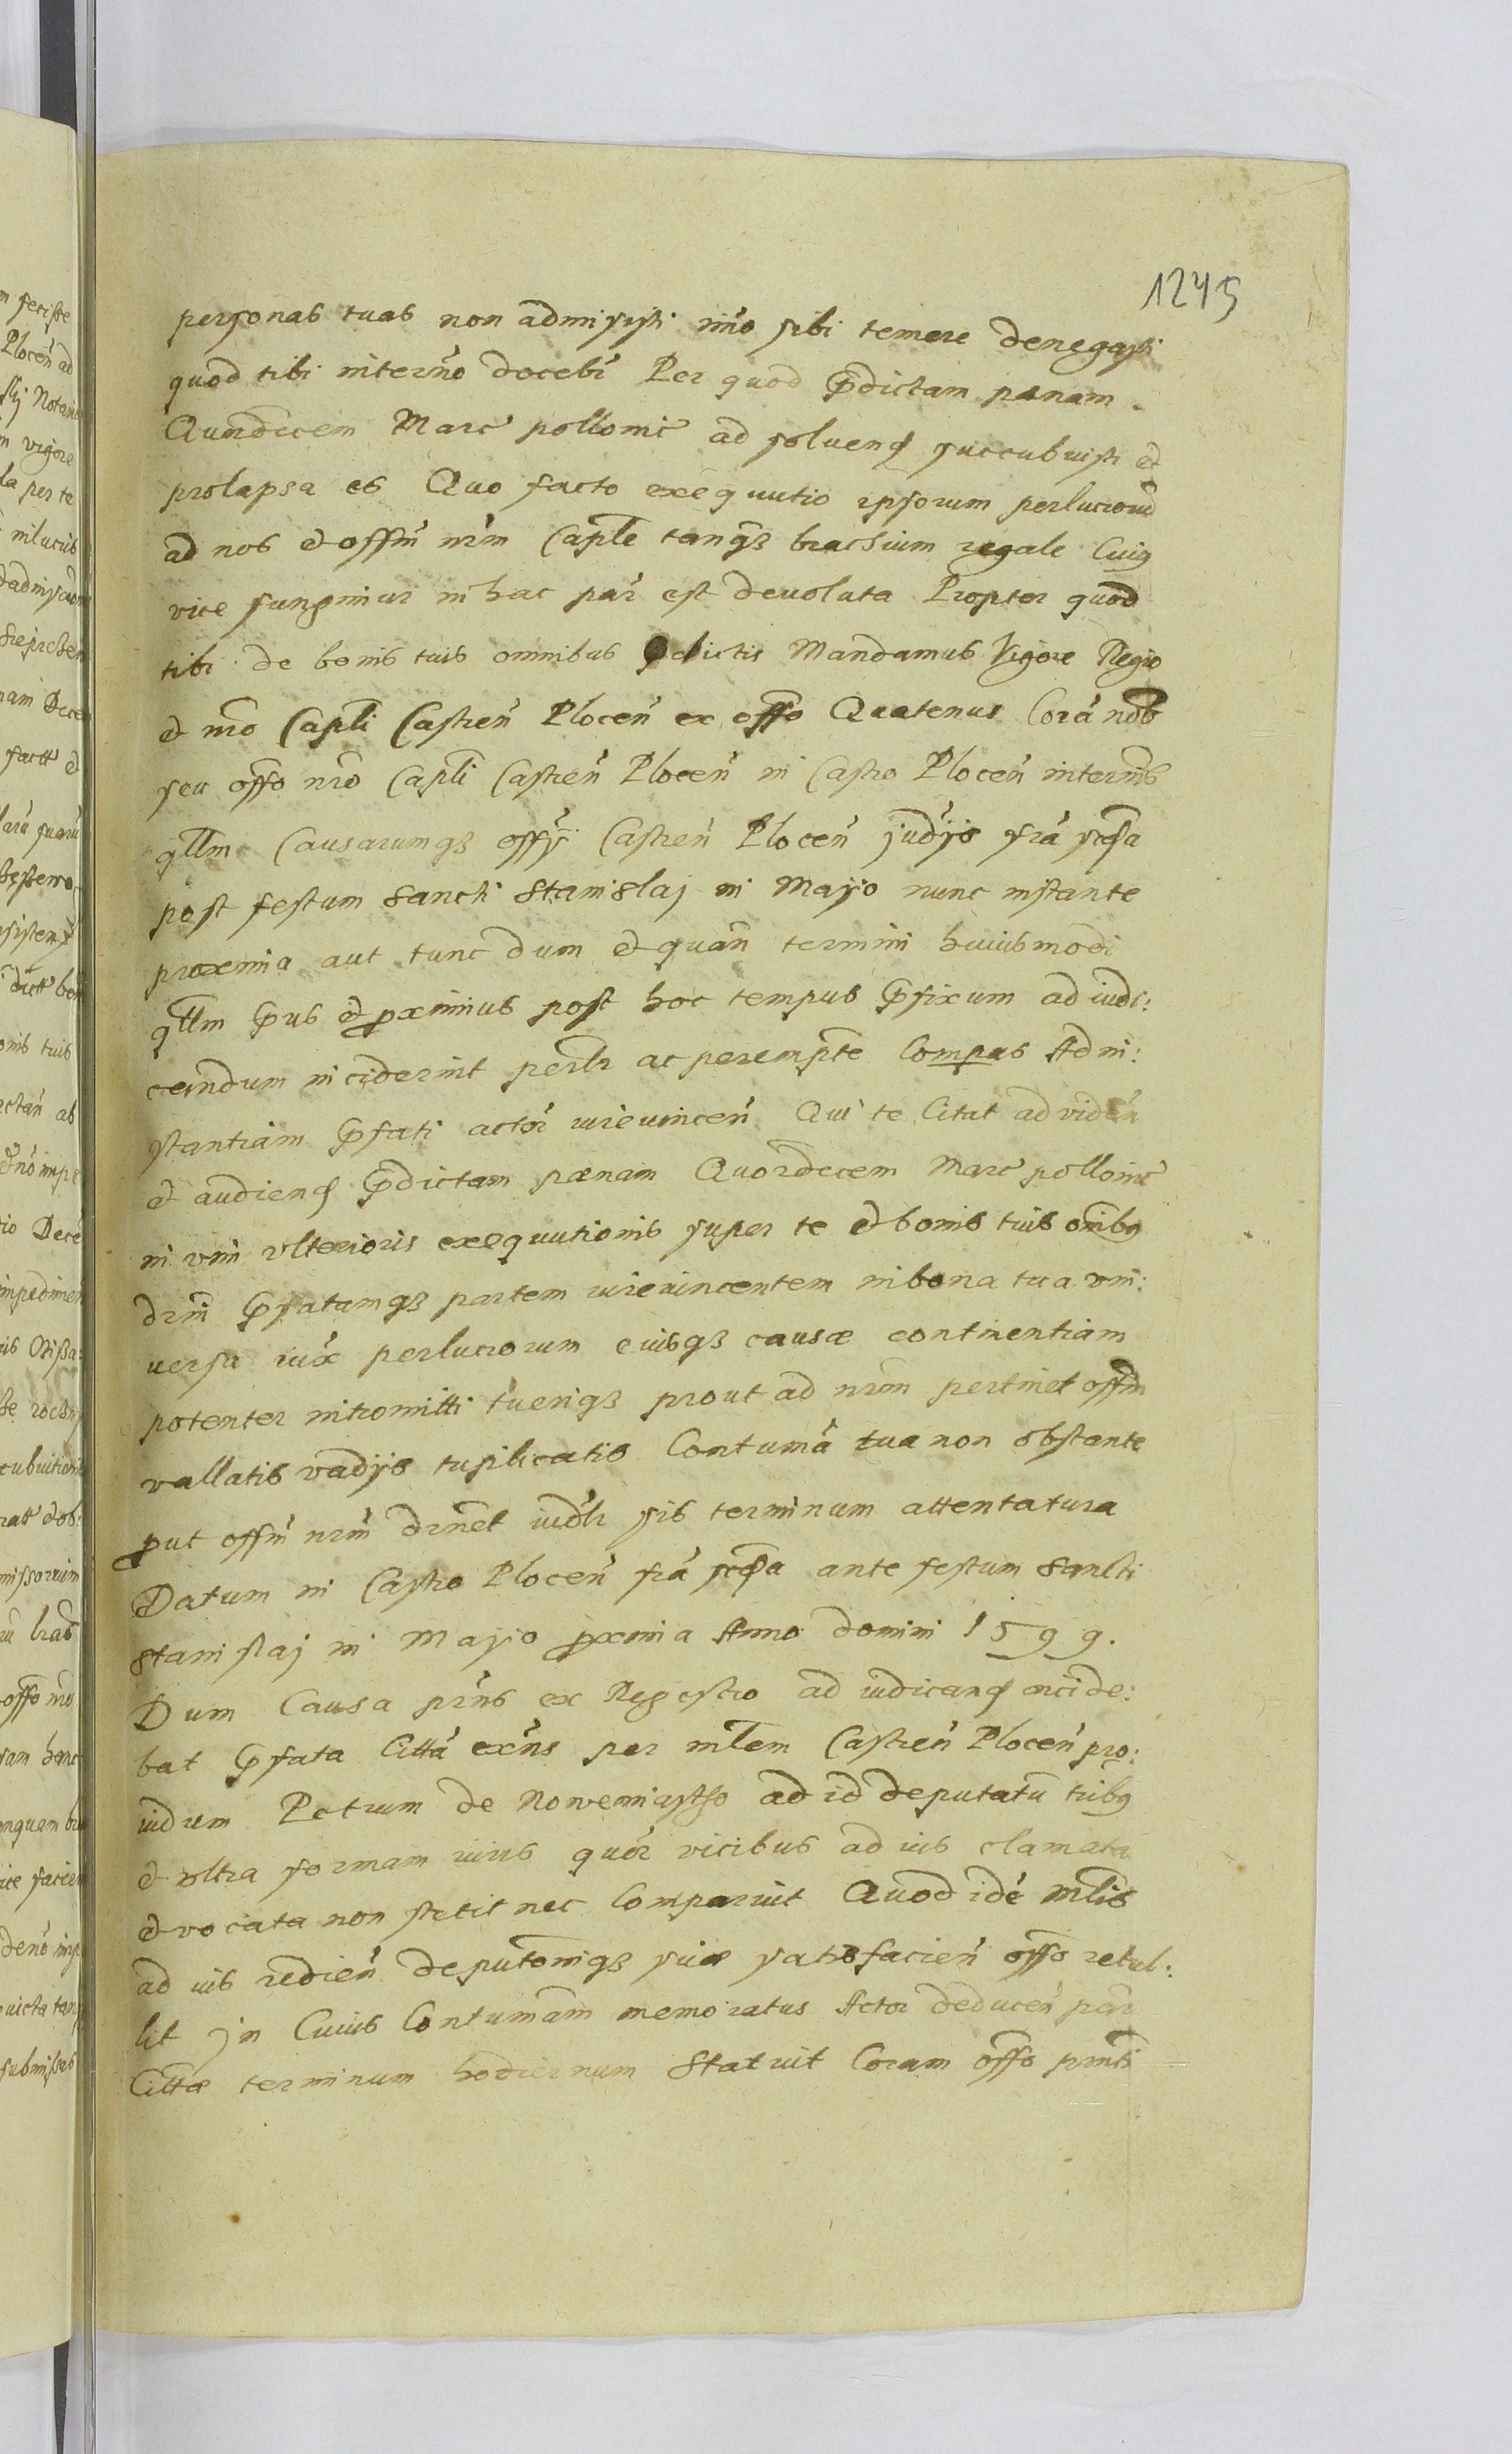 1245
personas tuas non admisisti im̃o sibi temere denegasti
quod tibi in termño docebr̃ Per quod p̃dictam pænam
Quordecem Marc̃ pollonic̃ ad soluend succubuisti et
prolapsa es Quo facto exequutio ipsorum perlucrorũ
ad nos et offm̃ nrm̃ Caple tanq̃ brachium regale Cuiq
vice fungimur in hac par̃ est deuoluta Propter quod
tibi de bonis tuis omnibus dictis Mandamus Vigore Regio
et nr̃o Capli Castren̄ Plocen̄ ex offo Quatenus Corã nob
seu offo nr̃o Capli Castren̄ Plocen̄ in Castro Plocen̄ in termis
qllm Causarumq offy Castren̄ Plocen̄ judys frã
post festum Sancti Stanislaj in Mayo nunc instante
proxima aut tunc dum et quan̄ termini huiusmodi
qllm p̃us et proximius post hoc tempus p̃fixum ad iudi:
candum inciderint perlr ac perempte Compas Ad in:
stantiam p̃fati actor̃ iurevincen̄ Qui te Citat ad viden̄
et audiend p̃dictam pænam Quordecem Marc̃ pollonic̃
in vim vlterioris exequutionis super te et bonis tuis omibq
p̃fatamq partem iurevincentem in bona tua vni:
uersa iux̃ perlucrorum eiusq causæ continentiam
potenter intromitti tueriq prout ad nrm̃ pertinet offm̃
vallatis vadys tuplicatis Contumã tua non obstante
put offm̃ nrm̃ iudlr sis terminum attentatura
Datum in Castro Plocen̄ frã ante festum Sancti
Stanislaj in Mayo proxima Anno domini 1599.
Dum Causa prñs ex Regestro ad iudicand incide:
bat p̃fata Cittã exñs per mlem Castren̄ Plocen̄ pro:
uidum Petrum de Nowemiastho ad id deputatũ tribq
et vltra formam iuris quor̃ vicibus ad ius clamata
et vocata non stetit nec Comparuit Quod idẽ mlis
ad ius redien̄ deputõniq suæ satisfacien̄ offo retul:
lit in Cuius Contumãm memoratus Actor deducen̄ par̃
Cittæ terminum hodiernum Statuit Coram offo prñti